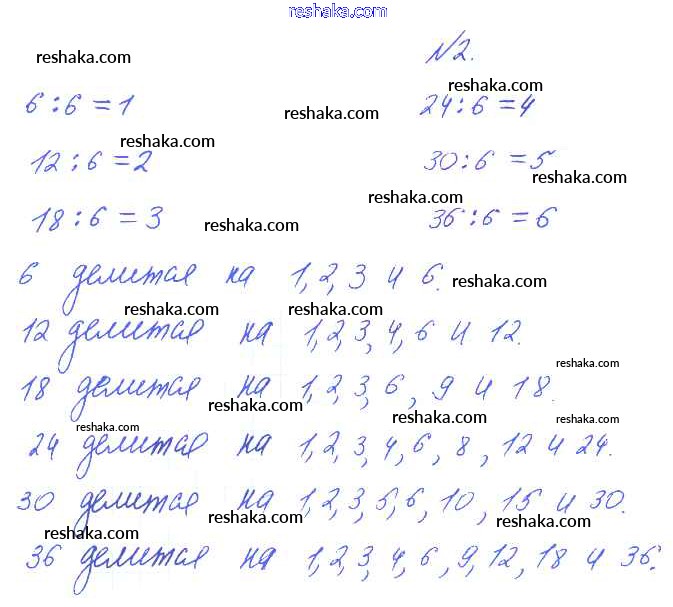 reshaka.com
№2.
reshaka.com
reshaka.com
6:6=1
reshaka.com
24:6=4
reshaka.com
12:6=2
30:6=5
reshaka.com
reshaka.com
18:6=3
reshaka.com
36:6=6
6 делится на 1,2,3 и 6.
reshaka.com
reshaka.com
reshaka.com
12 делится на 1,2,3,4,6 и 12.
reshaka.com
18 делится на 1,2,3,6,9 и 18.
reshaka.com
reshaka.com
reshaka.com
reshaka.com
24 делится на 1,2,3,4,6,8,12 и 24.
30 делится на 1,2,3,5,6,10,15 и 30.
reshaka.com
reshaka.com
reshaka.com
36 делится на 1,2,3,4,6,9,12,18 и 36.